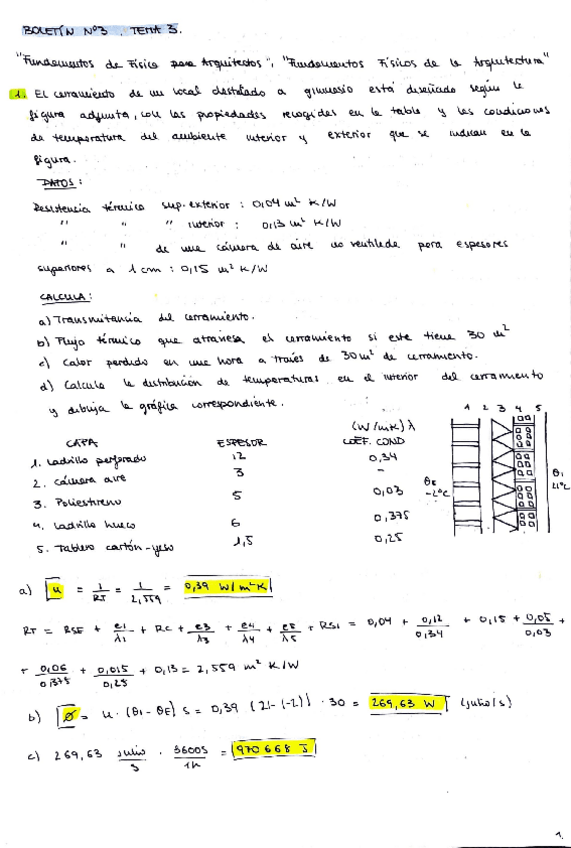 BOLETÍN Nº3. TEMA 3.
"Fundamentos de Física para Arquitectos", "Fundamentos Físicos de la Arquitectura"
1. El cerramiento de un local destinado a gimnasio está diseñado según la
figura adjunta, con las propiedades recogidas en la tabla y las condiciones
de temperatura del ambiente interior y exterior que se indican en la
figura.
DATOS:
Resistencia térmica sup. exterior : 0,04 m² K/W
" " " interior : 0,13 m² K/W
" " de una cámara de aire no ventilada para espesores
superiores a 1 cm : 0,15 m² K/W
CALCULA:
a) Transmitancia del cerramiento.
b) Flujo térmico que atraviesa el cerramiento si este tiene 30 m²
c) Calor perdido en una hora a través de 30m² de cerramiento.
d) Calcula la distribución de temperaturas en el interior del cerramiento
y dibuja la gráfica correspondiente.
1 2 3 4 5
(W/mK) λ
CAPA ESPESOR COEF. COND
1. Ladrillo perforado 12 0,34
2. cámara aire 3 -
3. Poliestireno 5 0,03
4. Ladrillo hueco 6 0,375
5. Tablero cartón-yeso 1,5 0,25
θE
-2ºC
θi
21ºC
a) u = 1/RT = 1/2,559 = 0,39 W/m²K
RT = RSE + e1/λ1 + RC + e3/λ3 + e4/λ4 + e5/λ5 + RSI = 0,04 + 0,12/0,34 + 0,15 + 0,05/0,03 +
+ 0,06/0,375 + 0,015/0,25 + 0,13 = 2,559 m² K/W
b) Ø = u · (θi - θE) S = 0,39 (21-(-2)) · 30 = 269,63 W (julio/s)
c) 269,63 julio/s · 3600s/1h = 970 668 J
1.